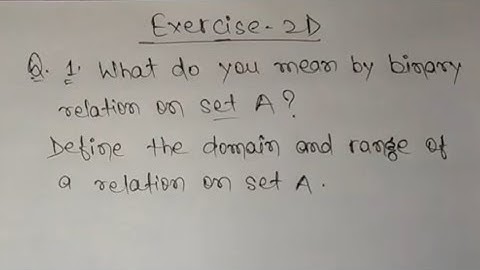 Exercise-2D
Q. 1. What do you mean by binary
relation on set A?
Define the domain and range of
a relation on set A.